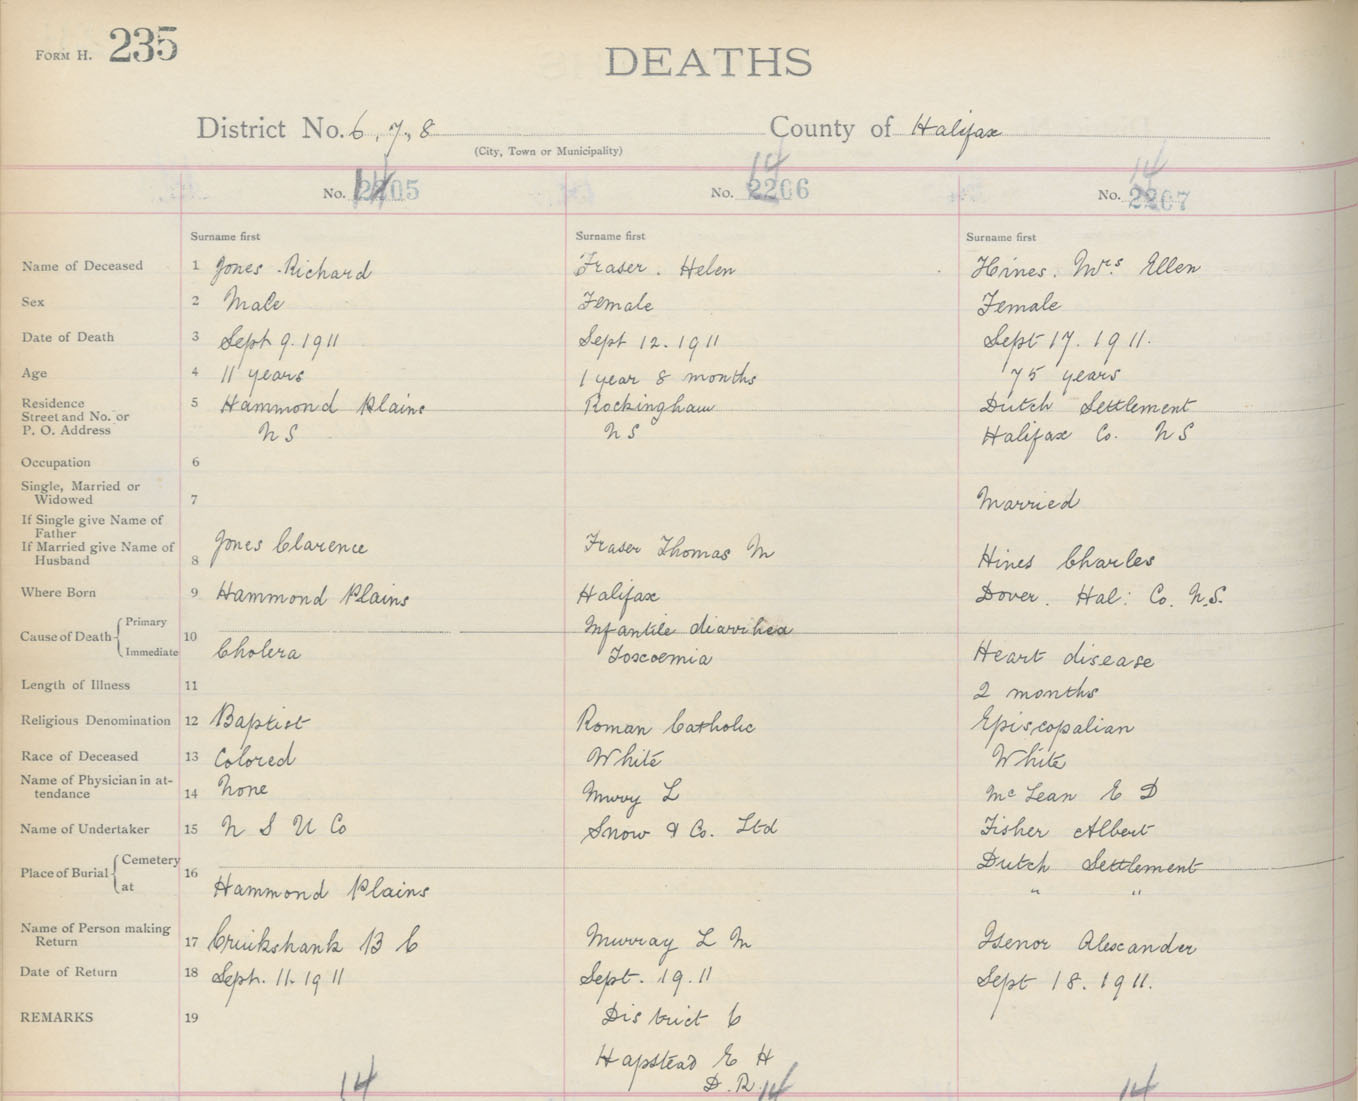 FORM H. 235
DEATHS
District No. 6, 7, 8 County of Halifax
(City, Town or Municipality)
14 14 14
No. 2205 No. 2206 No. 2207
Surname first Surname first Surname first
Name of Deceased 1 Jones . Richard Fraser . Helen Hines . Mrs Ellen
Sex 2 Male Female Female
Date of Death 3 Sept 9. 1911 Sept 12. 1911 Sept 17. 1911.
Age 4 11 years 1 year 8 months 75 years
Residence 5 Hammond Plains Rockingham Dutch Settlement
Street and No. or
P. O. Address N S N S Halifax Co. N S
Occupation 6
Single, Married or
Widowed 7 Married
If Single give Name of
Father
If Married give Name of Jones Clarence Fraser Thomas M
Husband 8 Hines Charles
Where Born 9 Hammond Plains Halifax Dover . Hal: Co. N.S.
Primary Infantile diarrhea
Cause of Death 10
Immediate Cholera Toxcoemia Heart disease
Length of Illness 11 2 months
Religious Denomination 12 Baptist Roman Catholic Episcopalian
Race of Deceased 13 Colored White White
Name of Physician in at-
tendance 14 None L McLean E D
Name of Undertaker 15 N S U Co Snow & Co. Ltd Fisher Albert
Cemetery Dutch Settlement
Place of Burial 16
at Hammond Plains " "
Name of Person making
Return 17 Cruikshank B C Murray L M Isenor Alexander
Date of Return 18 Sept. 11. 1911 Sept. 19. 11 Sept 18. 1911.
REMARKS 19 District 6
Hapstead E H
D. R.
14 14 14